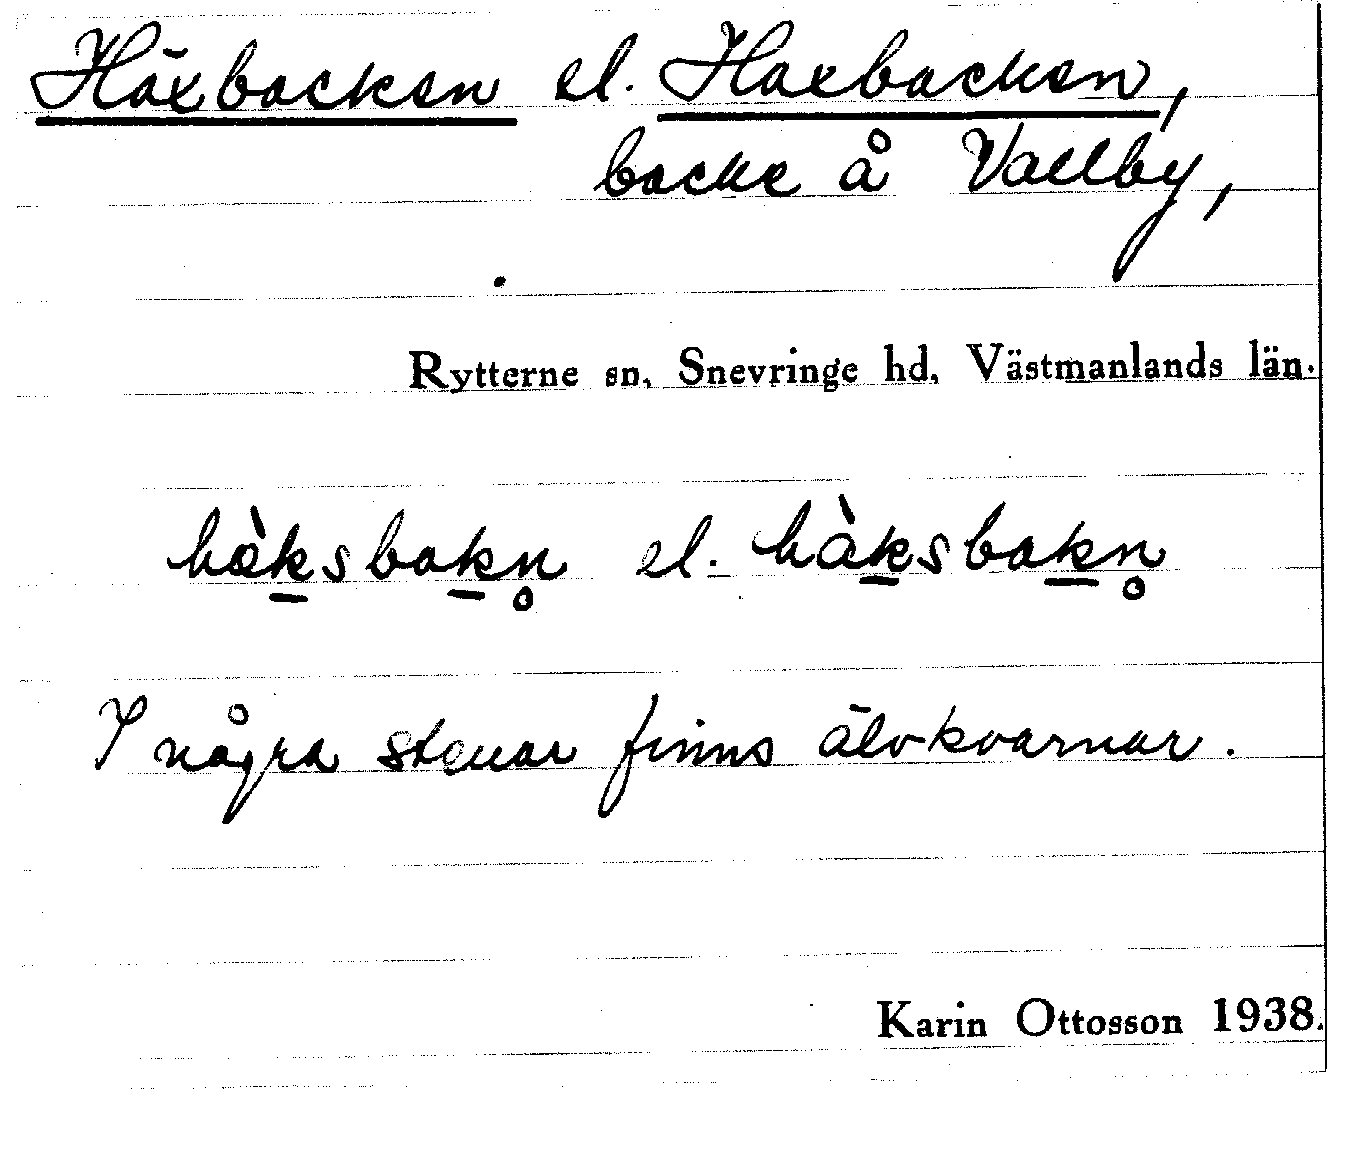 Häxbacken el. Haxbacken,
backe å Vallby,
Rytterne sn, Snevringe hd, Västmanlands län.
hæ̀ksbakn̥ el. hàksbakn̥
I några stenar finns älvkvarnar.
Karin Ottosson 1938.